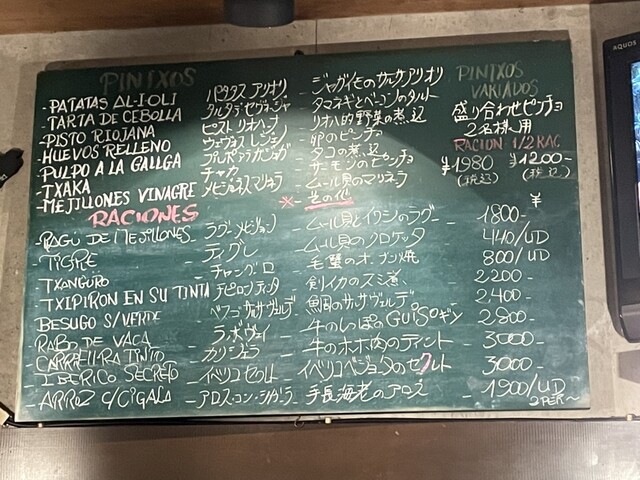 PINTXOS
- PATATAS ALIOLI パタタス アリオリ - ジャガイモのサルサ アリオリ
- TARTA DE CEBOLLA タルタ デ セヴォージャ - タマネギとベーコンのタルト
- PISTO RIOJANA ピスト リオハーナ - リオハ的野菜の煮込
- HUEVOS RELLENO - 卵のピンチョ
- PULPO A LA GALLGA - タコの煮込
- TXAKA チャカ - サーモンのピンチョ
- MEJILLONES VINAGRE - ムール貝のマリネーラ
PINTXOS VARIADOS
盛り合わせピンチョ
2名様用
RACION 1/2 RAC
¥1980 ¥1200-
(税込) (税込)
RACIONES ※ その他 ¥
- RAGÚ DE MEJILLONES - ラグー メヒジョン - ムール貝とイワシのラグー - 1800-
- TIGRE - ティグレ - ムール貝のクロケッタ - 440/UD
- TXANGURO - チャングロ - 毛蟹のオーブン焼 - 800/UD
- TXIPIRON EN SU TINTA - チピロン ティンタ - 剣イカのスミ煮 - 2200-
BESUGO S/VERDE - ベスーゴ サルサヴェルデ - 鯛のサルサヴェルデ - 2,400-
RABO DE VACA - ラボヴェイ - 牛のしっぽのGUISOギソ - 2800-
CARRELLRA TINTO - カリジェラ - 牛のホホ肉のティント - 3000-
IBERICO SECRETO - イベリコ セクレト - イベリコベジョータのセクレト - 3000-
ARROZ C/CIGALA - アロス・コン・シガーラ - 手長海老のアロス - 1900/UD
2PER~
AQUOS